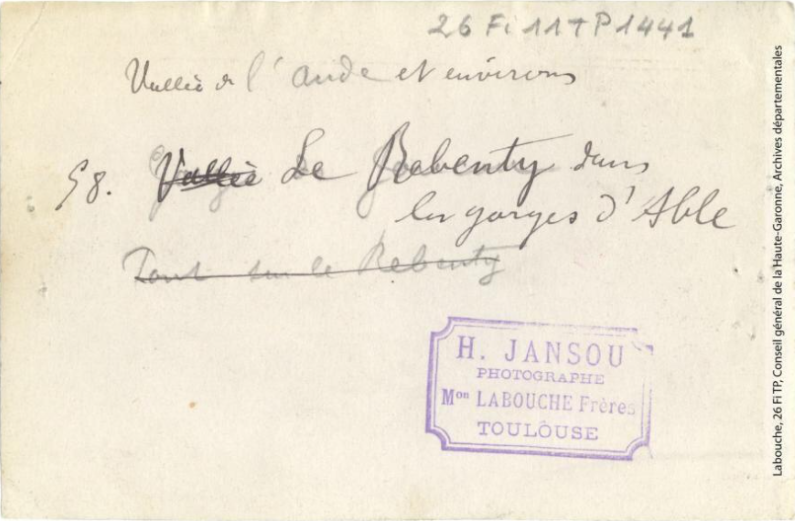 26 Fi 11 TP 1441
Vallée de l'Aude et environs
58. Vallée Le Rebenty dans
les gorges d'Able
Pont sur le Rebenty
H. JANSOU
PHOTOGRAPHE
Mon LABOUCHE Frères
TOULOUSE
Labouche, 26 Fi TP, Conseil général de la Haute-Garonne, Archives départementales